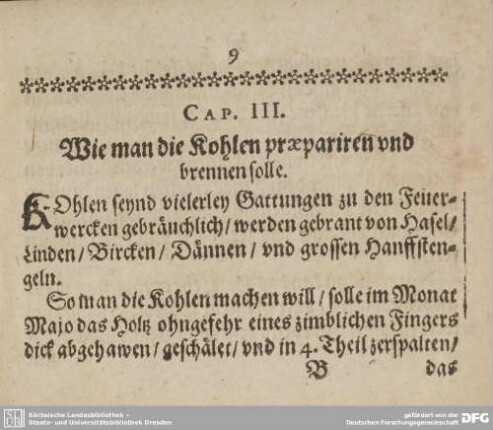 9
CAP. III.
Wie man die Kohlen præpariren vnd
brennen solle.
KOhlen seynd vielerley Gattungen zu den Feuer-
wercken gebräuchlich/ werden gebrant von Hasel/
Linden/ Bircken/ Dännen/ vnd grossen Hanffsten-
geln.
So man die Kohlen machen will/ solle im Monat
Majo das Holtz ohngefehr eines zimblichen Fingers
dick abgehawen/ geschälet/ vnd in 4. Theil zerspalten/
B das
SLUB
Sächsische Landesbibliothek –
Staats- und Universitätsbibliothek Dresden
gefördert von der
Deutschen Forschungsgemeinschaft
DFG